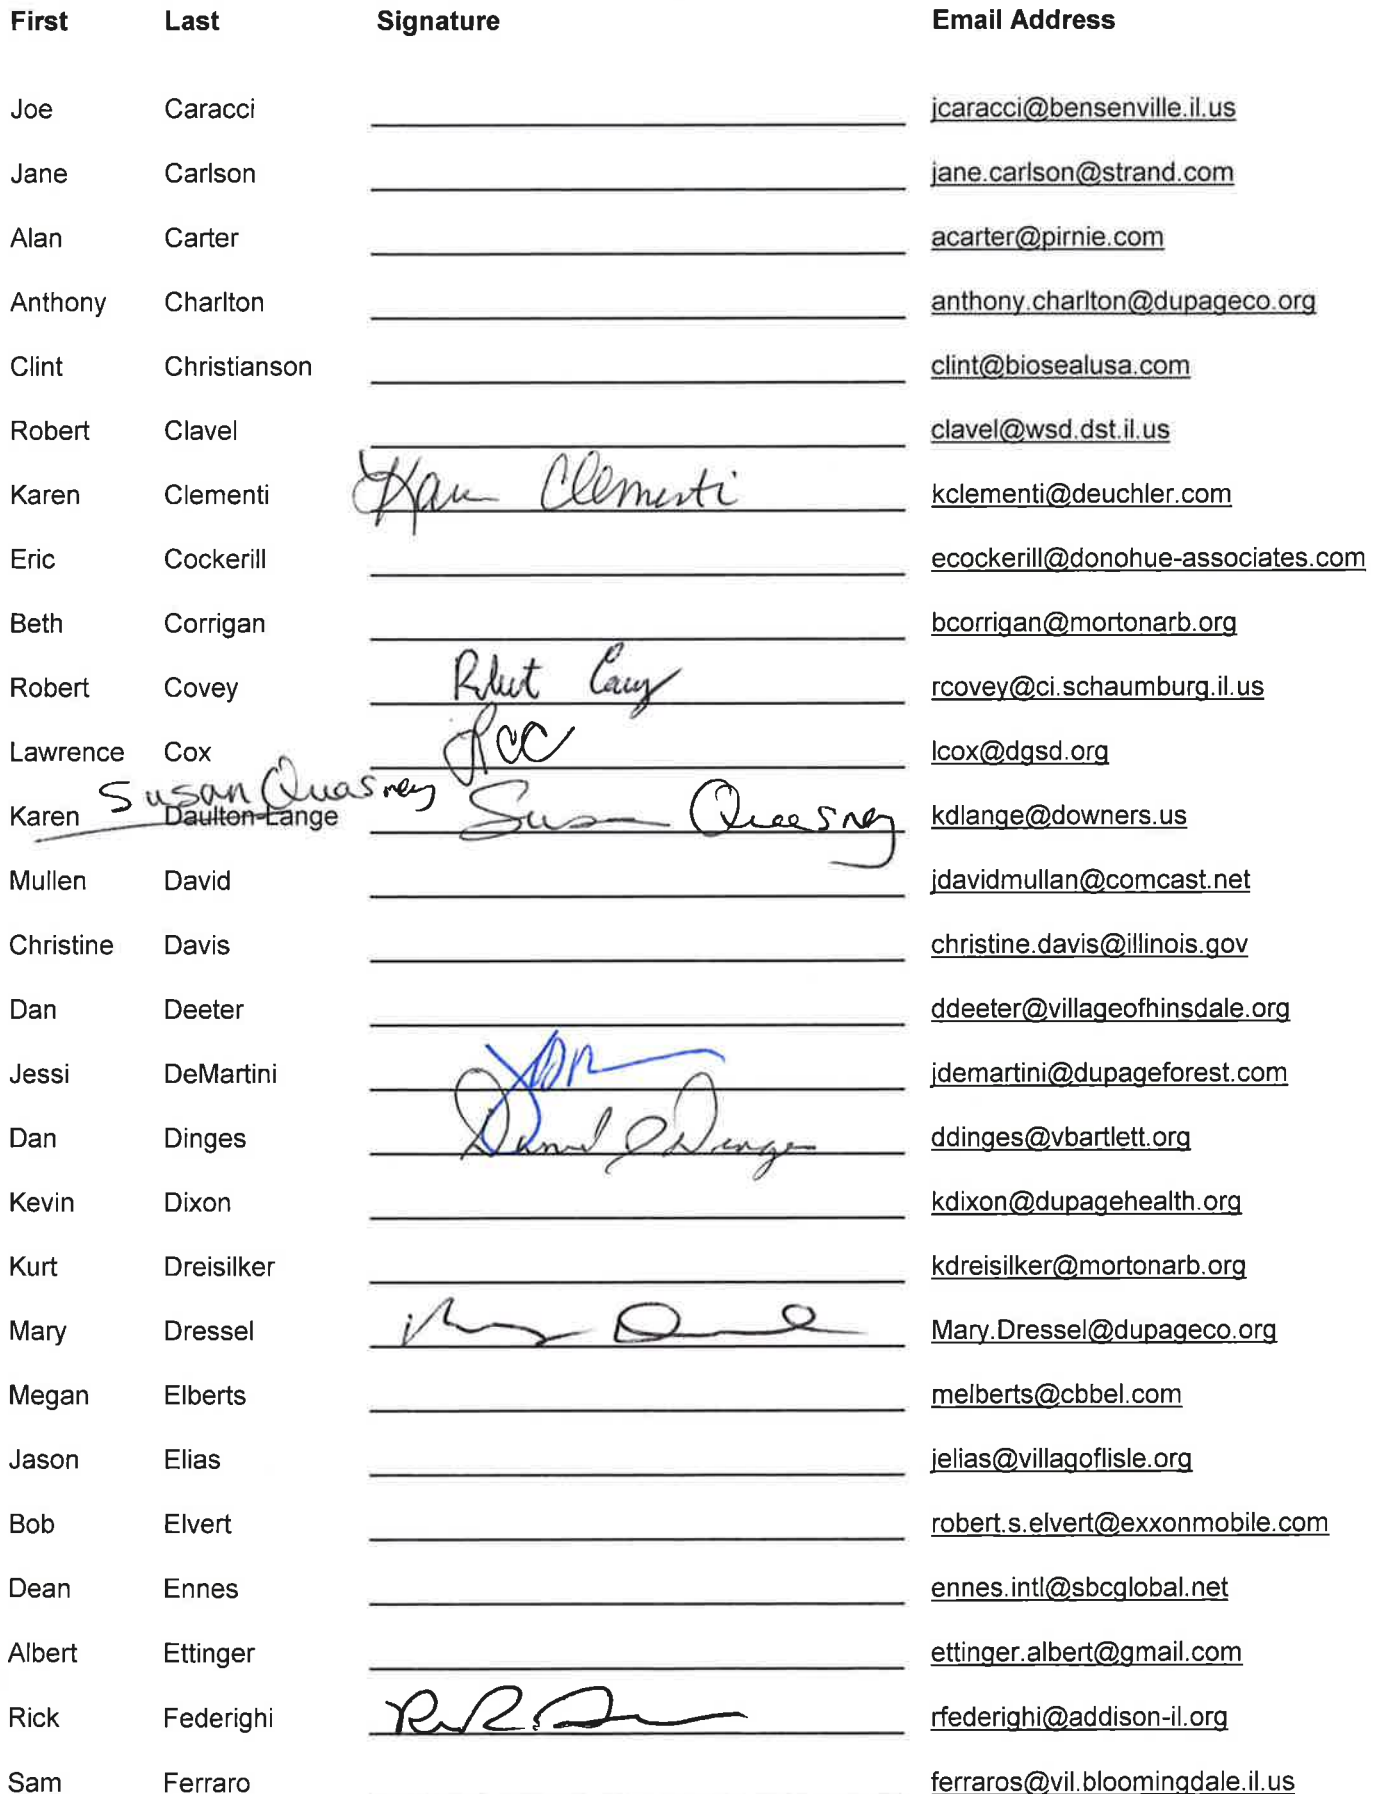 First Last Signature Email Address
Joe Caracci jcaracci@bensenville.il.us
Jane Carlson jane.carlson@strand.com
Alan Carter acarter@pirnie.com
Anthony Charlton anthony.charlton@dupageco.org
Clint Christianson clint@biosealusa.com
Robert Clavel clavel@wsd.dst.il.us
Karen Clementi Karen Clementi kclementi@deuchler.com
Eric Cockerill ecockerill@donohue-associates.com
Beth Corrigan bcorrigan@mortonarb.org
Robert Covey Robert Covey rcovey@ci.schaumburg.il.us
Lawrence Cox lcox@dgsd.org
Susan Quasney
Karen Daulton-Lange Susan Quasney kdlange@downers.us
Mullen David jdavidmullan@comcast.net
Christine Davis christine.davis@illinois.gov
Dan Deeter ddeeter@villageofhinsdale.org
Jessi DeMartini jdemartini@dupageforest.com
Dan Dinges Daniel J Dinges ddinges@vbartlett.org
Kevin Dixon kdixon@dupagehealth.org
Kurt Dreisilker kdreisilker@mortonarb.org
Mary Dressel Mary.Dressel@dupageco.org
Megan Elberts melberts@cbbel.com
Jason Elias jelias@villagoflisle.org
Bob Elvert robert.s.elvert@exxonmobile.com
Dean Ennes ennes.intl@sbcglobal.net
Albert Ettinger ettinger.albert@gmail.com
Rick Federighi rfederighi@addison-il.org
Sam Ferraro ferraros@vil.bloomingdale.il.us